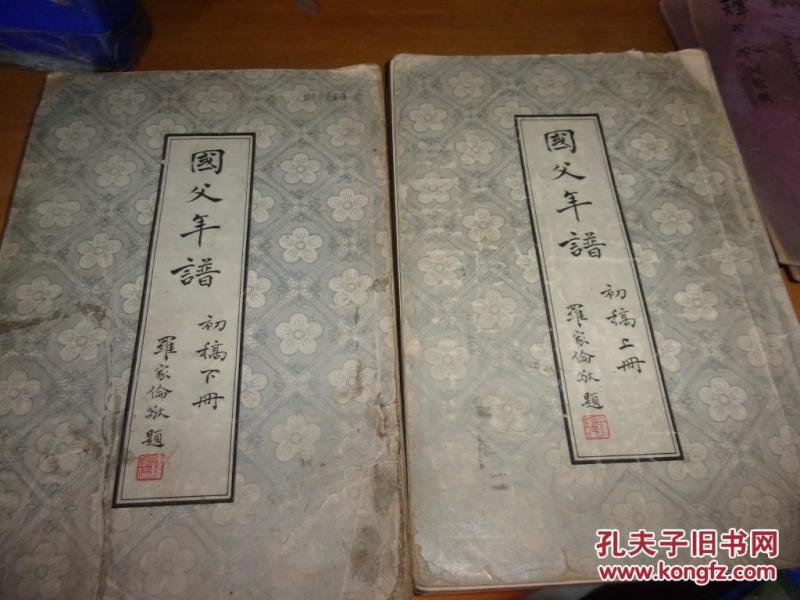 國父年譜
初稿下冊
羅家倫敬題
國父年譜
初稿上冊
羅家倫敬題
孔夫子旧书网
www.kongfz.com